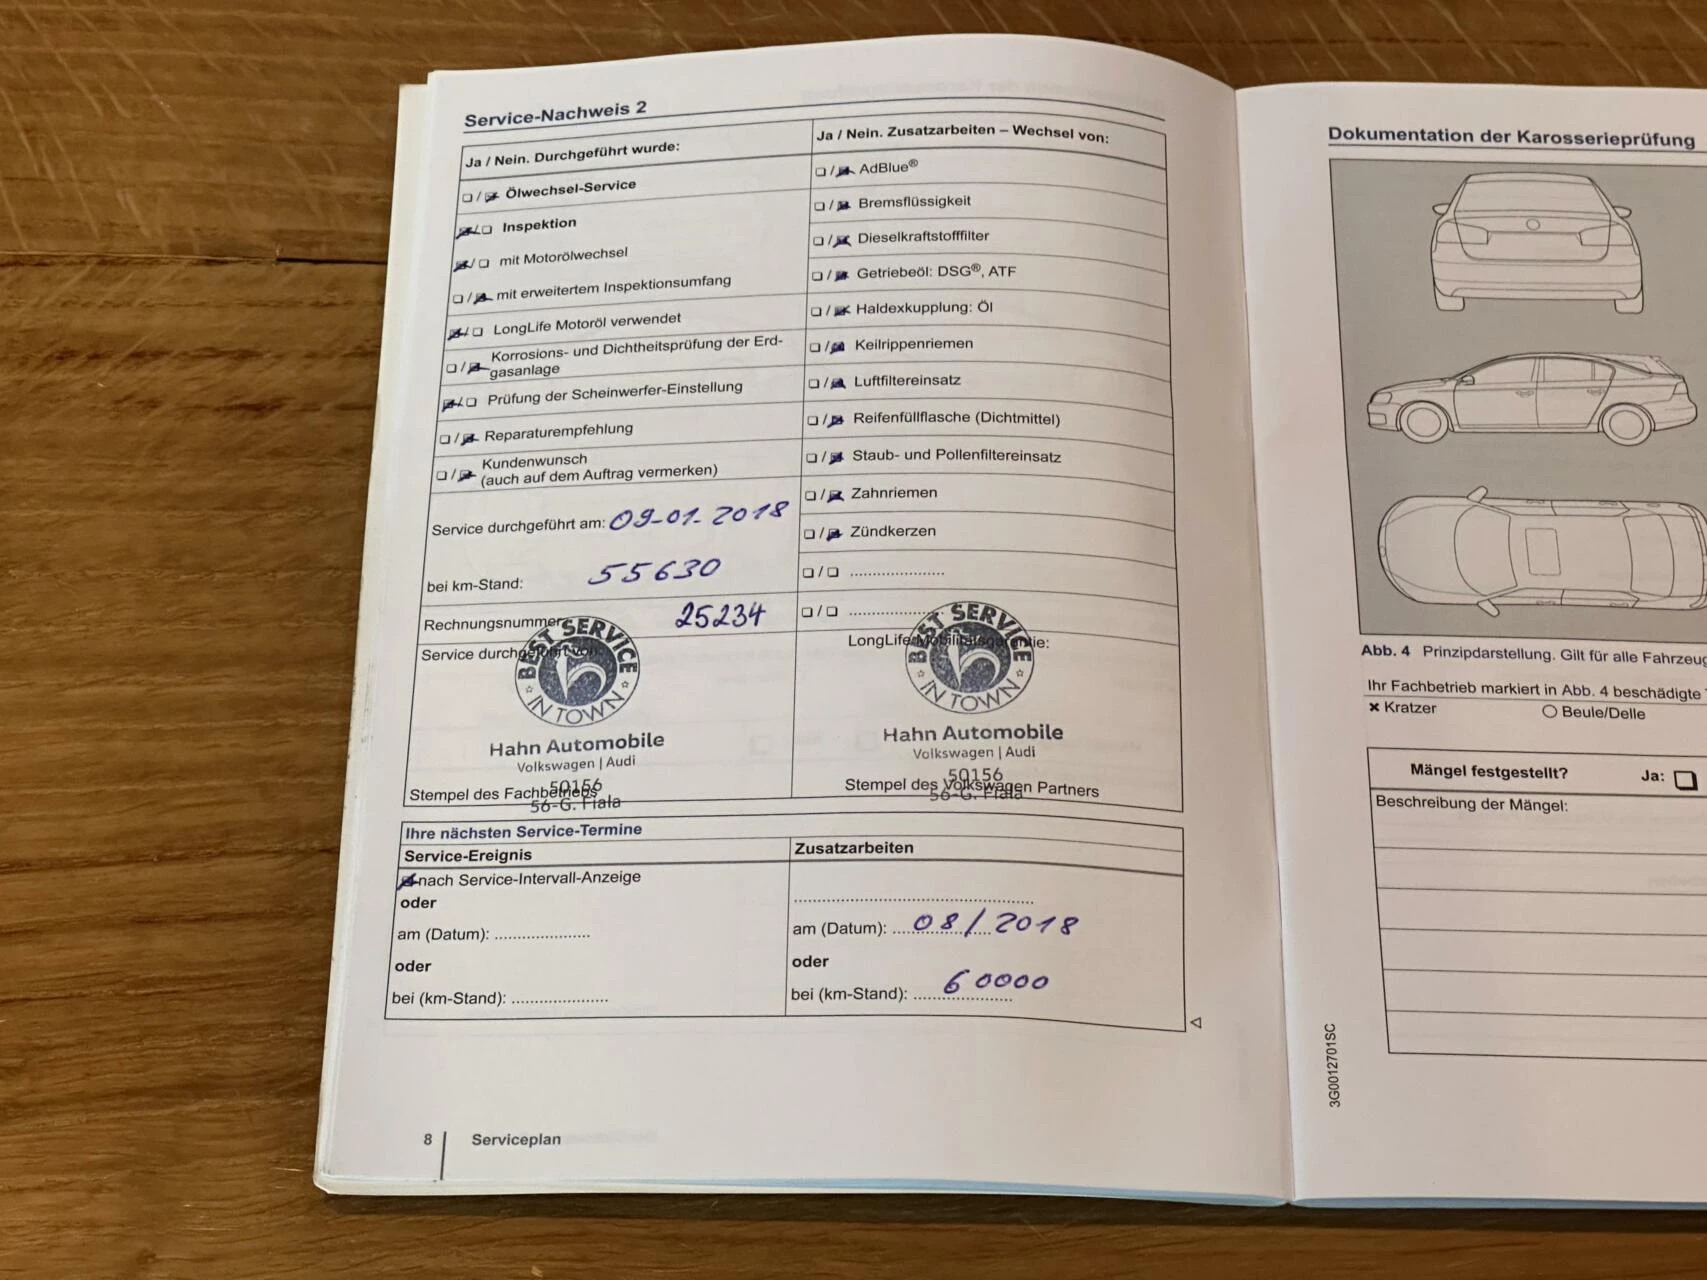 Service-Nachweis 2
Ja / Nein. Durchgeführt wurde:
❏ / ☒ Ölwechsel-Service
☒ / ❏ Inspektion
☒ / ❏ mit Motorölwechsel
❏ / ☒ mit erweitertem Inspektionsumfang
☒ / ❏ LongLife Motoröl verwendet
❏ / ☒ Korrosions- und Dichtheitsprüfung der Erd-
gasanlage
☒ / ❏ Prüfung der Scheinwerfer-Einstellung
❏ / ☒ Reparaturempfehlung
❏ / ☒ Kundenwunsch
(auch auf dem Auftrag vermerken)
Service durchgeführt am: 09-01-2018
bei km-Stand: 55630
Rechnungsnummer 25234
Service durchgeführt von:
BEST SERVICE
IN TOWN
5
Hahn Automobile
Volkswagen | Audi
50156
56-G. Fiala
Stempel des Fachbetriebs
Ja / Nein. Zusatzarbeiten – Wechsel von:
❏ / ☒ AdBlue®
❏ / ☒ Bremsflüssigkeit
❏ / ☒ Dieselkraftstofffilter
❏ / ☒ Getriebeöl: DSG®, ATF
❏ / ☒ Haldexkupplung: Öl
❏ / ☒ Keilrippenriemen
❏ / ☒ Luftfiltereinsatz
❏ / ☒ Reifenfüllflasche (Dichtmittel)
❏ / ☒ Staub- und Pollenfiltereinsatz
❏ / ☒ Zahnriemen
❏ / ☒ Zündkerzen
❏ / ❏ ......................
❏ / ❏ ......................
LongLife Mobilitätsgarantie:
BEST SERVICE
IN TOWN
5
Hahn Automobile
Volkswagen | Audi
50156
56-G. Fiala
Stempel des Volkswagen Partners
Ihre nächsten Service-Termine
Service-Ereignis
☒ nach Service-Intervall-Anzeige
oder
am (Datum): ......................
oder
bei (km-Stand): ......................
Zusatzarbeiten
am (Datum): 08/2018
oder
bei (km-Stand): 60000
8 Serviceplan
Dokumentation der Karosserieprüfung
Abb. 4 Prinzipdarstellung. Gilt für alle Fahrzeug
Ihr Fachbetrieb markiert in Abb. 4 beschädigte
× Kratzer ○ Beule/Delle
Mängel festgestellt? Ja: ❏
Beschreibung der Mängel:
3G0012701SC